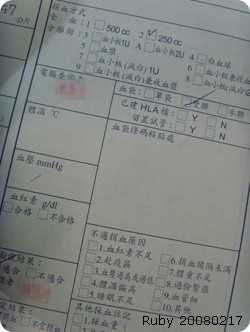 97 公斤
捐血方式
全 血：1 □ 500 cc 2 ☑ 250 cc
分離術：3 □ 血小板1U A □ 血小板2U 4 □ 白血球
5 □ 血漿 6 □ 血小板兼收血
7 □ 血小板(減白) 1U 8 □ 血小板(減白)
9 □ 血小板(減白)兼收血漿
電腦查詢
血袋：□ 單袋 □ 叁聯
已建 HLA 檔：□ Y □ N
留置試管：□ Y □ N
血袋條碼粘貼處
體溫 ℃
血壓 mmHg
/
血紅素 g/dl
□合格 □不合格
結果：
□不適合
不適捐血原因
□1.血紅素不足 □6.捐血間隔未滿
□2.赴疫區 □7.體重不足
□3.血壓過高或過低 □8.過份緊張
□4.體溫偏高 □9.血管細
□5.睡眠不足 □10.其他
其他採血註記
□1.採血量
Ruby 20080217